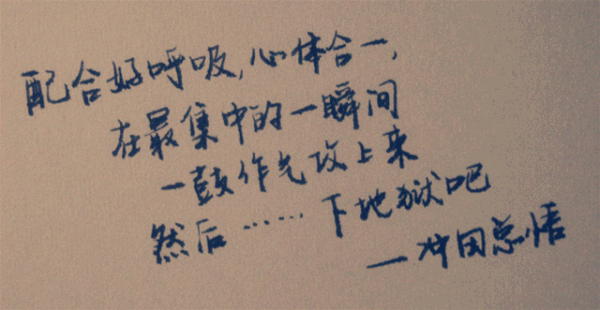 配合好呼吸,心体合一,
在最集中的一瞬间
一鼓作气攻上来
然后……下地狱吧
一冲田总悟